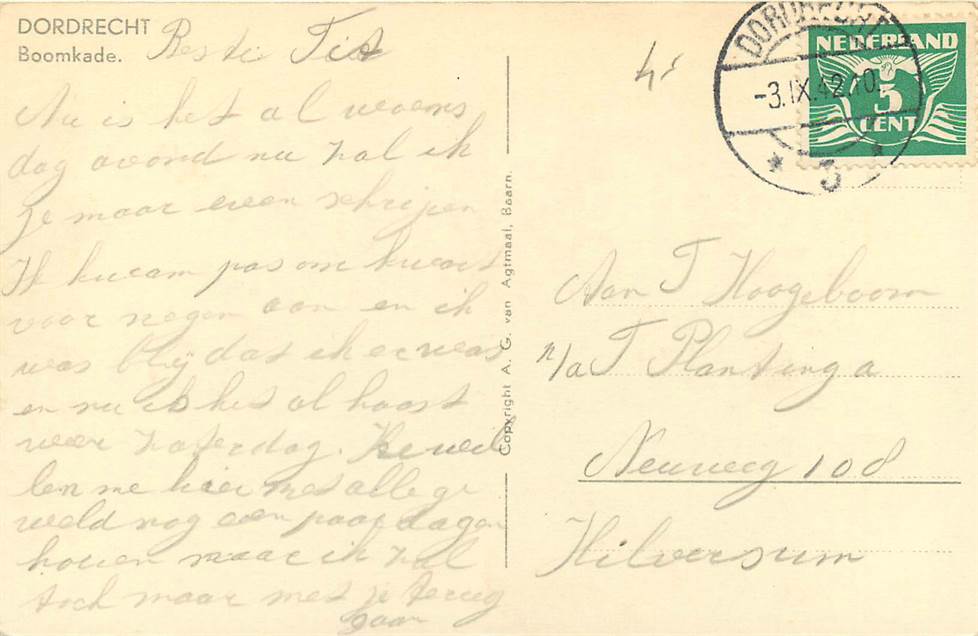 DORDRECHT
Boomkade.
Beste Tit
Nu is het al woens
dag avond nu zal ik
je maar even schrijven
Ik kwam pas om kwart
voor negen aan en ik
was blij dat ik er was
en nu is het al haast
weer zaterdag. Ze wil
len me hier met alle ge
weld nog een paar dagen
houen maar ik zal
toch maar met je terug
gaan
Copyright A. G. van Agtmaal, Baarn.
DORDRECHT
-3.IX.42.10
* 3 *
NEDERLAND
5
CENT
Aan T Hoogeboom
p/a T Plantinga
Neuweg 108
Hilversum